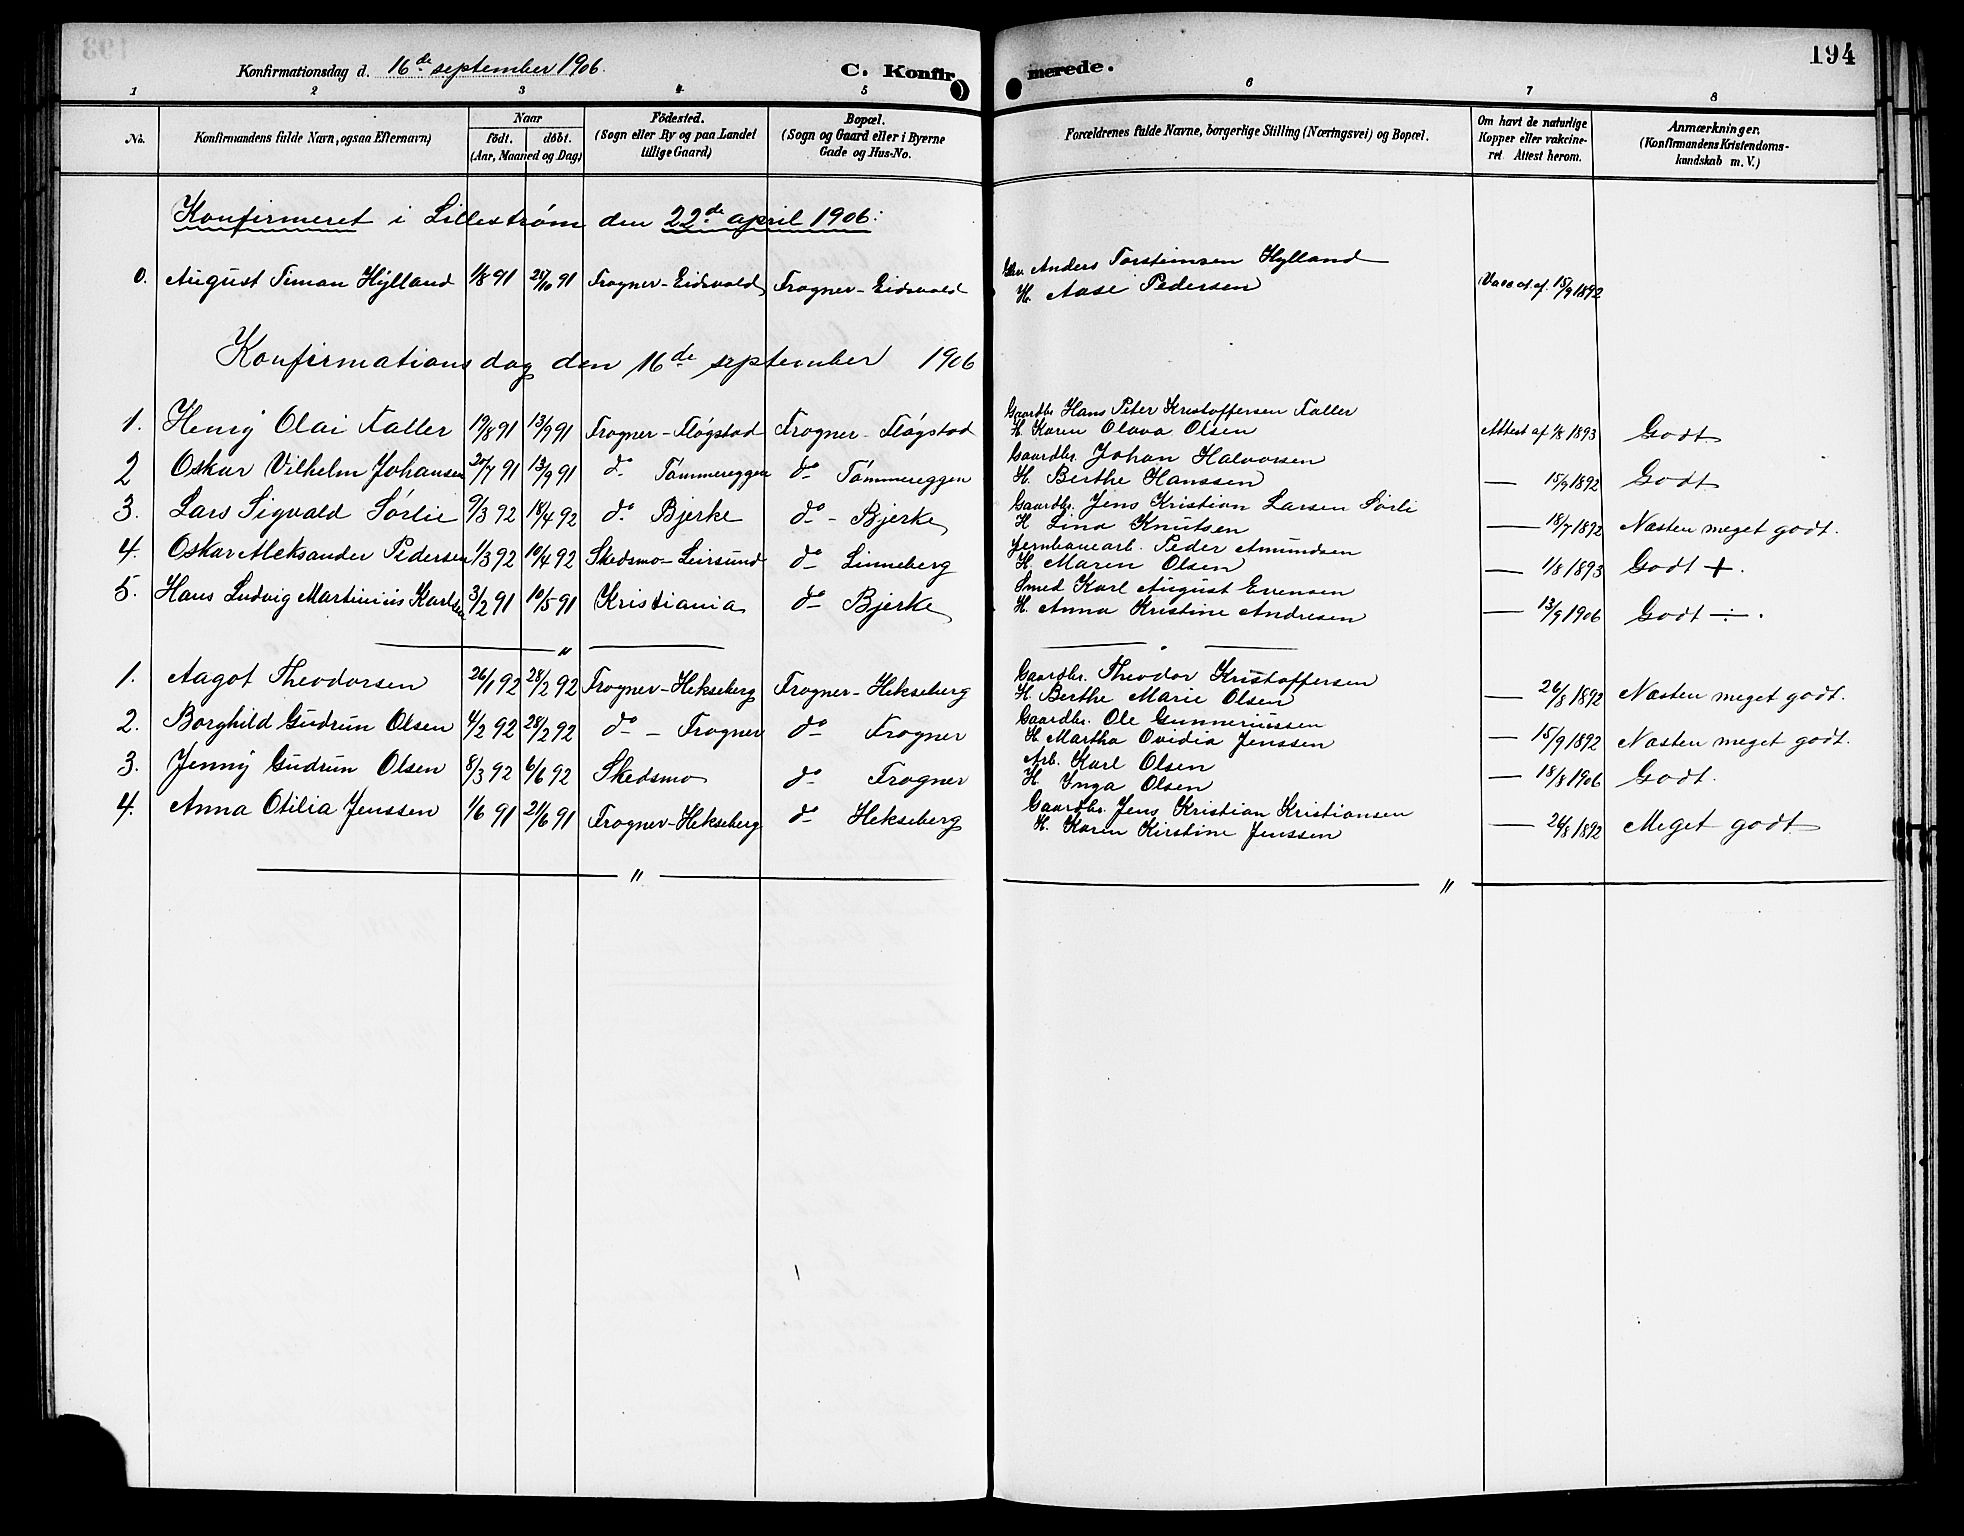 194
Konfirmationsdag d. 16de september 1906.
C. Konfirmerede.
1 2 3 4 5 6 7 8
No. Konfirmandens fulde Navn, ogsaa Efternavn) Naar födt. döbt. (Aar, Maaned og Dag) Födested. (Sogn eller By og paa Landet tillige Gaard) Bopæl. (Sogn og Gaard eller i Byerne Gade og Hus-No. Forældrenes fulde Navne, borgerlige Stilling (Næringsvei) og Bopæl. Om havt de naturlige Kopper eller vakcineret. Attest herom. Anmærkninger. (Konfirmandens Kristendomskundskab m. V.)
Konfirmeret i Lillestrøm den 22de april 1906:
0. August Timan Hylland 1/8 91 25/10 91 Frogner-Eidsvold Frogner-Eidsvold Anders Torsteinsen Hylland
H. Aase Pedersen 15/9 1892
Konfirmationsdag den 16de september 1906
1. Henry Olai Faller 19/8 91 13/9 91 Frogner-Fløgstad Frogner-Fløgstad Gaardbr. Hans Peter Kristoffersen Faller
H. Karen Olava Olsen Attest af 1/8 1893 Godt
2 Oskar Vilhelm Johansen 20/7 91 13/9 91 do Tømmereggen do Tømmereggen Gaardbr. Johan Halvorsen
H. Berthe Hanssen — 15/9 1892 Godt
3. Lars Sigvald Sørlie 9/3 92 18/4 92 do. Bjerke do - Bjerke Gaardbr. Jens Kristian Larsen Sørli
H Lina Knutsen — 18/7 1892 Næsten meget godt.
4. Oskar Aleksander Pedersen 1/3 92 10/4 92 Skedsmo-Leirsund do Linneberg Jernbanearb. Peder Amundsen
H. Maren Olsen — 1/8 1893 Godt +.
5. Hans Ludvig Martinius Karlsen 3/2 91 10/5 91 Kristiania do Bjerke Smed Karl August Evensen
H. Anna Kristine Andresen — 13/9 1906 Godt ÷.
— " —
1. Aagot Theodorsen 26/1 92 28/2 92 Frogner-Hekseberg Frogner-Hekseberg Gaardbr. Theodor Kristoffersen
H. Berthe Marie Olsen — 26/8 1892 Næsten meget godt.
2. Borghild Gudrun Olsen 4/2 92 28/2 92 do - Frogner do Frogner Gaardbr. Ole Gunneriussen
H. Martha Ovidia Jenssen — 15/9 1892 Næsten meget godt.
3. Jenny Gudrun Olsen 8/3 92 6/6 92 Skedsmo do Frogner Arb. Karl Olsen
H. Inga Olsen — 18/8 1906 Godt.
4. Anna Otilia Jenssen 1/6 91 21/6 91 Frogner-Hekseberg do Hekseberg Gaardbr. Jens Kristian Kristiansen
H. Karen Kirstine Jenssen — 26/8 1892 Meget godt
— " — — " —